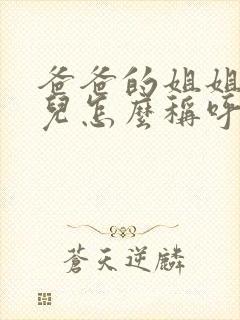 爸爸的姐姐
兒怎麼稱呼
蒼天逆麟